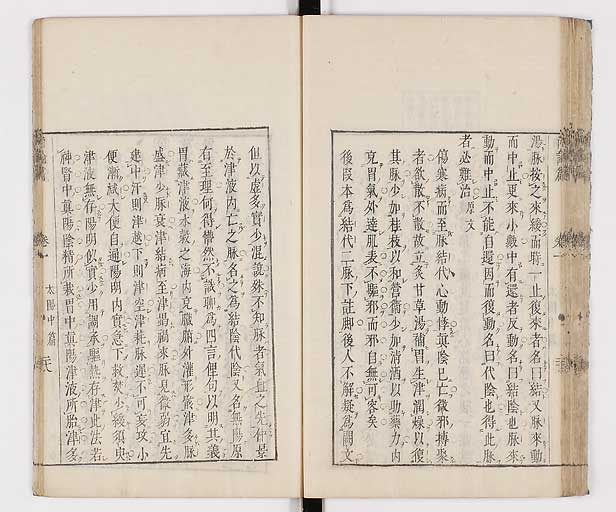 湯脉按之來緩而時一止復來者名曰結又脉來動
而中止更來小數中有還者反動名曰結陰也脉來
動而中止不能自還因而復動名曰代陰也得此脉
者必難治 原文
傷寒病而至脉結代心動悸真陰已亡微邪摶聚
者欲散不散故立炙甘草湯補胃生津潤燥以復
其脉少加桂枝以和營衞少加清酒以助藥力内
克胃氣外達肌表不驅邪而邪自無可容矣
後叚本為結代二脉下註脚後人不解疑為闕文
但以虛多實少混說殊不知脉者氣血之先仲景
於津液内亡之脉名之為結陰代陰又名無陽原
有至理何得懵然不識聊為四言俚句以明其義
胃藏津液水穀之海内充臟腑外灌形骸津多脉
盛津少脉衰津結病至津竭禍來脉見微弱宜先
建中汗則津越下則津空津耗脉遲不可妄攻小
便漸減大便自通陽明内實急下救焚少緩須臾
津液無存陽明似實少用調承驅熱存津此法若
神腎中真陽陰精所載胃中真陽津液所胎津多
太陽中篇